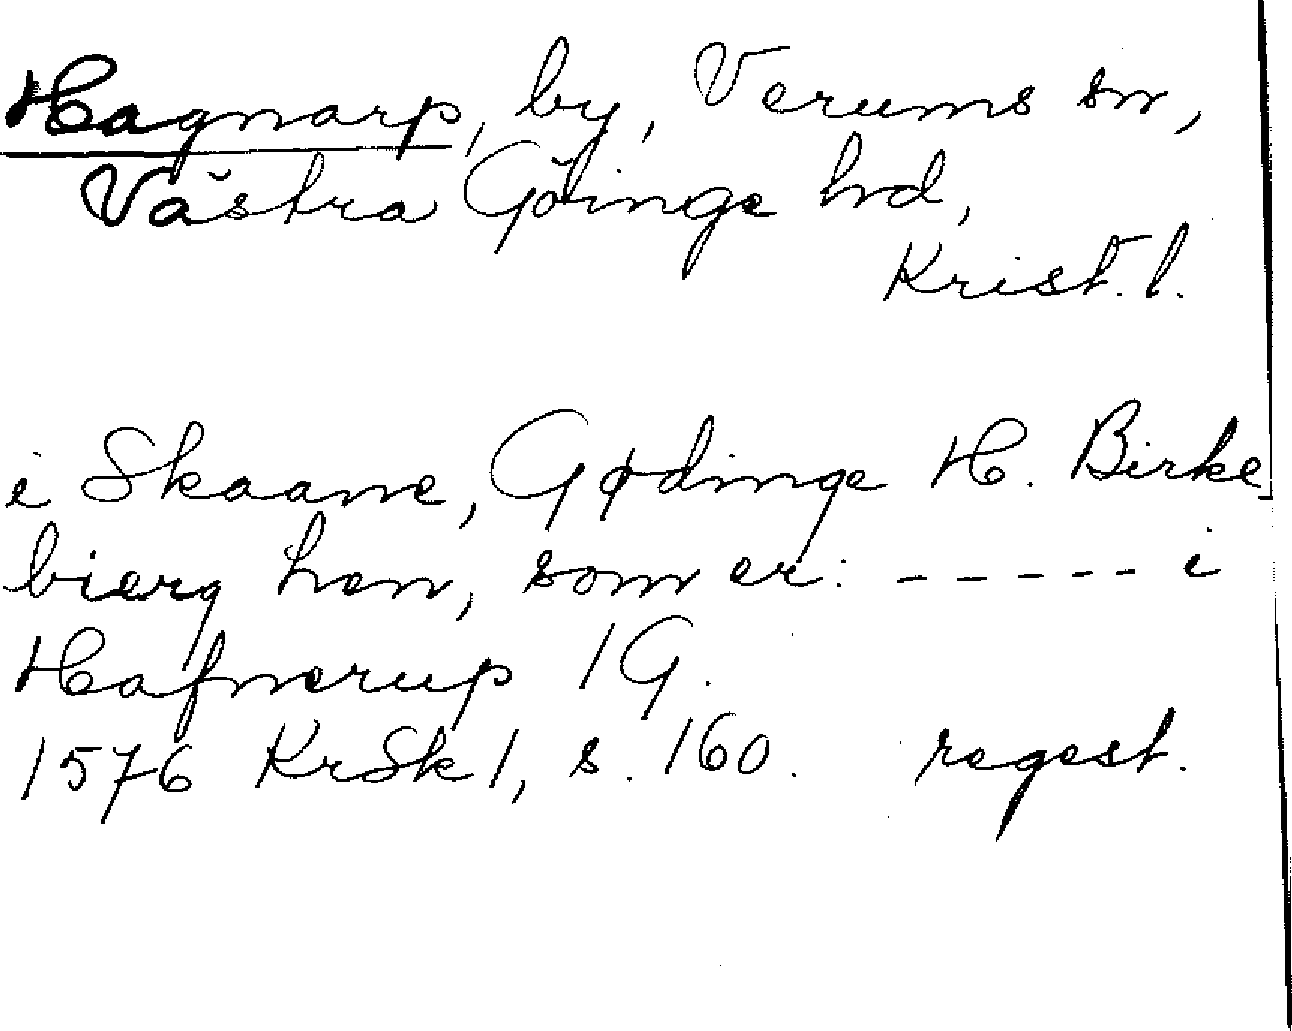 Hagnarp, by, Verums sn,
Västra Göinge hd,
Krist. l.
i Skaane, Gødinge H. Birke
bierg hen, som er: - - - - - i
Hafnerup 1 G.
1576 KrSk 1, s. 160. regest.